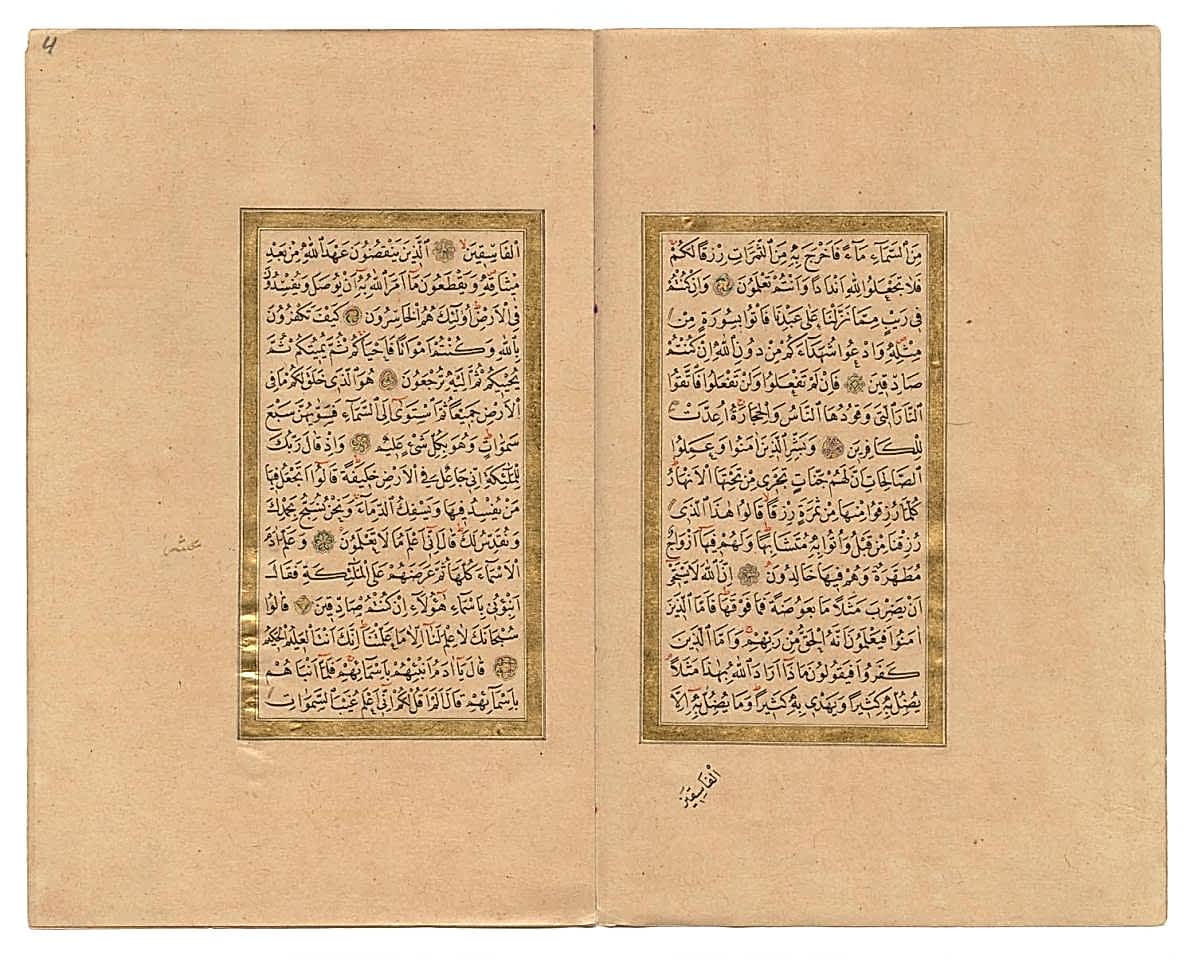 مِنَ السَّمَآءِ مَآءً فَاَخْرَجَ بِهٖ مِنَ الثَّمَرَاتِ رِزْقًا لَكُمْ
فَلَا تَجْعَلُوا لِلّٰهِ اَنْدَادًا وَاَنْتُمْ تَعْلَمُونَ وَاِنْ كُنْتُمْ
فِى رَيْبٍ مِمَّا نَزَّلْنَا عَلٰى عَبْدِنَا فَاْتُوا بِسُورَةٍ مِنْ
مِثْلِهٖ وَادْعُوا شُهَدَآءَكُمْ مِنْ دُونِ اللّٰهِ اِنْ كُنْتُمْ
صَادِقِينَ فَاِنْ لَمْ تَفْعَلُوا وَلَنْ تَفْعَلُوا فَاتَّقُوا
النَّارَ الَّتِى وَقُودُهَا النَّاسُ وَالْحِجَارَةُ اُعِدَّتْ
لِلْكَافِرِينَ وَبَشِّرِ الَّذِينَ اٰمَنُوا وَعَمِلُوا
الصَّالِحَاتِ اَنَّ لَهُمْ جَنَّاتٍ تَجْرِى مِنْ تَحْتِهَا الْاَنْهَارُ
كُلَّمَا رُزِقُوا مِنْهَا مِنْ ثَمَرَةٍ رِزْقًا قَالُوا هٰذَا الَّذِى
رُزِقْنَا مِنْ قَبْلُ وَاُتُوا بِهٖ مُتَشَابِهًا وَلَهُمْ فِيهَا اَزْوَاجٌ
مُطَهَّرَةٌ وَهُمْ فِيهَا خَالِدُونَ اِنَّ اللّٰهَ لَا يَسْتَحْيٖ
اَنْ يَضْرِبَ مَثَلًا مَا بَعُوضَةً فَمَا فَوْقَهَا فَاَمَّا الَّذِينَ
اٰمَنُوا فَيَعْلَمُونَ اَنَّهُ الْحَقُّ مِنْ رَبِّهِمْ وَاَمَّا الَّذِينَ
كَفَرُوا فَيَقُولُونَ مَاذَا اَرَادَ اللّٰهُ بِهٰذَا مَثَلًا
يُضِلُّ بِهٖ كَثِيرًا وَيَهْدِى بِهٖ كَثِيرًا وَمَا يُضِلُّ بِهٖ اِلَّا
الْفَاسِقِينَ
4
الْفَاسِقِينَ الَّذِينَ يَنْقُضُونَ عَهْدَ اللّٰهِ مِنْ بَعْدِ
مِيثَاقِهٖ وَيَقْطَعُونَ مَا اَمَرَ اللّٰهُ بِهٖ اَنْ يُوصَلَ وَيُفْسِدُونَ
فِى الْاَرْضِ اُولٰئِكَ هُمُ الْخَاسِرُونَ كَيْفَ تَكْفُرُونَ
بِاللّٰهِ وَكُنْتُمْ اَمْوَاتًا فَاَحْيَاكُمْ ثُمَّ يُمِيتُكُمْ ثُمَّ
يُحْيِيكُمْ ثُمَّ اِلَيْهِ تُرْجَعُونَ هُوَ الَّذِى خَلَقَ لَكُمْ مَا فِى
الْاَرْضِ جَمِيعًا ثُمَّ اسْتَوٰى اِلَى السَّمَآءِ فَسَوّٰيهُنَّ سَبْعَ
سَمٰوَاتٍ وَهُوَ بِكُلِّ شَىْءٍ عَلِيمٌ وَاِذْ قَالَ رَبُّكَ
لِلْمَلٰئِكَةِ اِنِّى جَاعِلٌ فِى الْاَرْضِ خَلِيفَةً قَالُوا اَتَجْعَلُ فِيهَا
مَنْ يُفْسِدُ فِيهَا وَيَسْفِكُ الدِّمَآءَ وَنَحْنُ نُسَبِّحُ بِحَمْدِكَ
وَنُقَدِّسُ لَكَ قَالَ اِنِّى اَعْلَمُ مَا لَا تَعْلَمُونَ وَعَلَّمَ اٰدَمَ
الْاَسْمَآءَ كُلَّهَا ثُمَّ عَرَضَهُمْ عَلَى الْمَلٰئِكَةِ فَقَالَ
اَنْبِؤُنِى بِاَسْمَآءِ هٰؤُلَآءِ اِنْ كُنْتُمْ صَادِقِينَ قَالُوا
سُبْحَانَكَ لَا عِلْمَ لَنَا اِلَّا مَا عَلَّمْتَنَا اِنَّكَ اَنْتَ الْعَلِيمُ الْحَكِيمُ
قَالَ يَا اٰدَمُ اَنْبِئْهُمْ بِاَسْمَائِهِمْ فَلَمَّا اَنْبَاَهُمْ
بِاَسْمَائِهِمْ قَالَ اَلَمْ اَقُلْ لَكُمْ اِنِّى اَعْلَمُ غَيْبَ السَّمٰوَاتِ